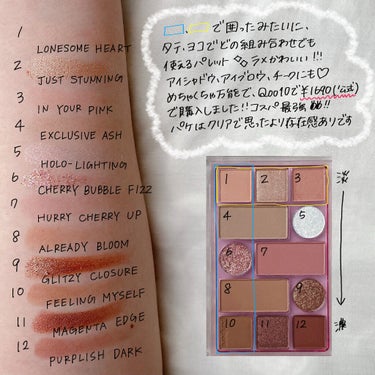 1
LONESOME HEART
2
JUST STUNNING
3
IN YOUR PINK
4
EXCLUSIVE ASH
5
HOLO-LIGHTING
6
CHERRY BUBBLE FIZZ
7
HURRY CHERRY UP
8
ALREADY BLOOM
9
GLITZY CLOSURE
10
FEELING MYSELF
11
MAGENTA EDGE
12
PURPLISH DARK
で囲ったみたいに、
タテ、ヨコでどの組み合わせでも
使えるパレット ラメかわいい!!!
アイシャドウ、アイブロウ、チークにも♡
めちゃくちゃ万能で、Qoo10で¥1690(公式)
で購入しました!! コスパ最強!!
パケはクリアで思ったより存在感ありです
1 2 3 淡
4 5
6 7
8 9
10 11 12 濃